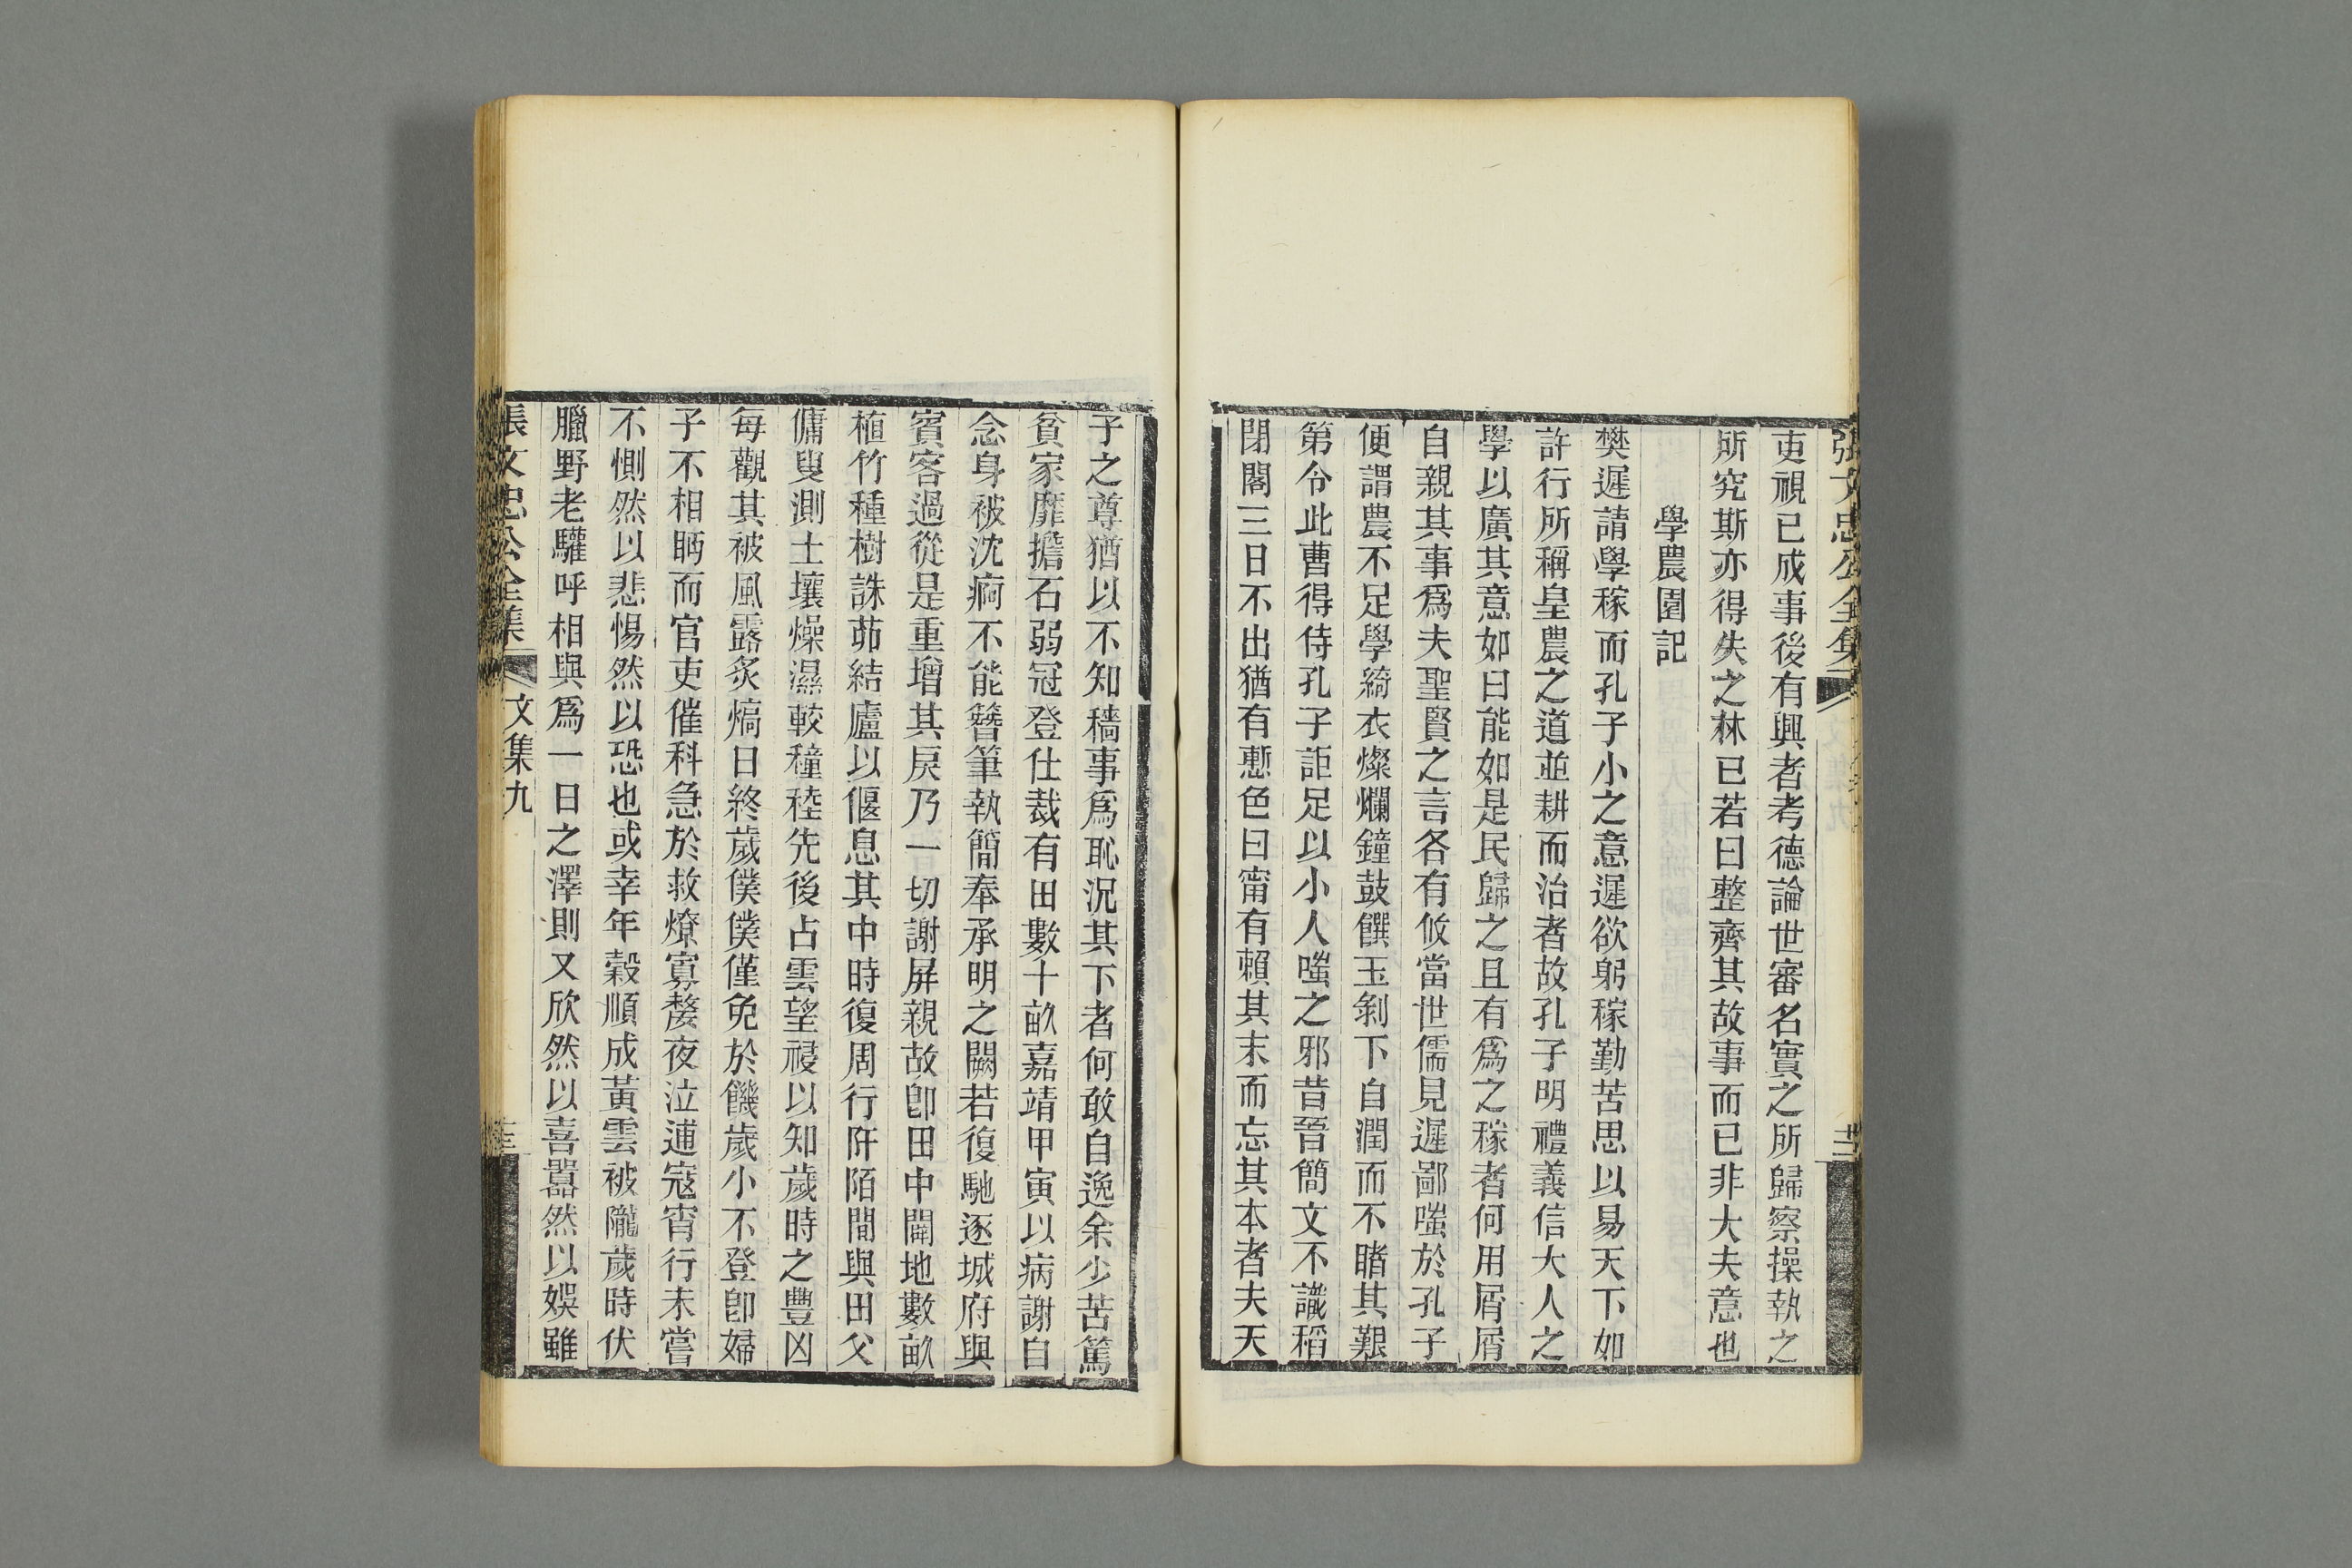 張文忠公全集
吏視已成事後有興者考德論世審名實之所歸察操執之
所究斯亦得失之林已若曰整齊其故事而已非大夫意也
學農園記
樊遲請學稼而孔子小之意遲欲躬稼勤苦思以易天下如
許行所稱皇農之道並耕而治者故孔子明禮義信大人之
學以廣其意如曰能如是民歸之且有爲之稼者何用屑屑
自親其事爲夫聖賢之言各有攸當世儒見遲鄙嗤於孔子
便謂農不足學綺衣燦爛鐘鼓饌玉剝下自潤而不睹其艱
第令此曹得侍孔子詎足以小人嗤之邪昔晉簡文不識稻
閉閣三日不出猶有慙色曰甯有賴其末而忘其本者夫天
子之尊猶以不知穡事爲恥況其下者何敢自逸余少苦篤
貧家靡擔石弱冠登仕裁有田數十畝嘉靖甲寅以病謝自
念身被沈痾不能簪筆執簡奉承明之闕若復馳逐城府與
賓客過從是重增其戾乃一切謝屏親故卽田中闢地數畝
植竹種樹誅茆結廬以偃息其中時復周行阡陌間與田父
傭叟測土壤燥濕較穜稑先後占雲望祲以知歲時之豐凶
每觀其被風露炙熇日終歲僕僕僅免於饑歲小不登卽婦
子不相眄而官吏催科急於救燎寡嫠夜泣逋寇宵行未嘗
不惻然以悲惕然以恐也或幸年穀順成黃雲被隴歲時伏
臘野老驩呼相與爲一日之澤則又欣然以喜嚣然以娛雖
張文忠公全集 文集九